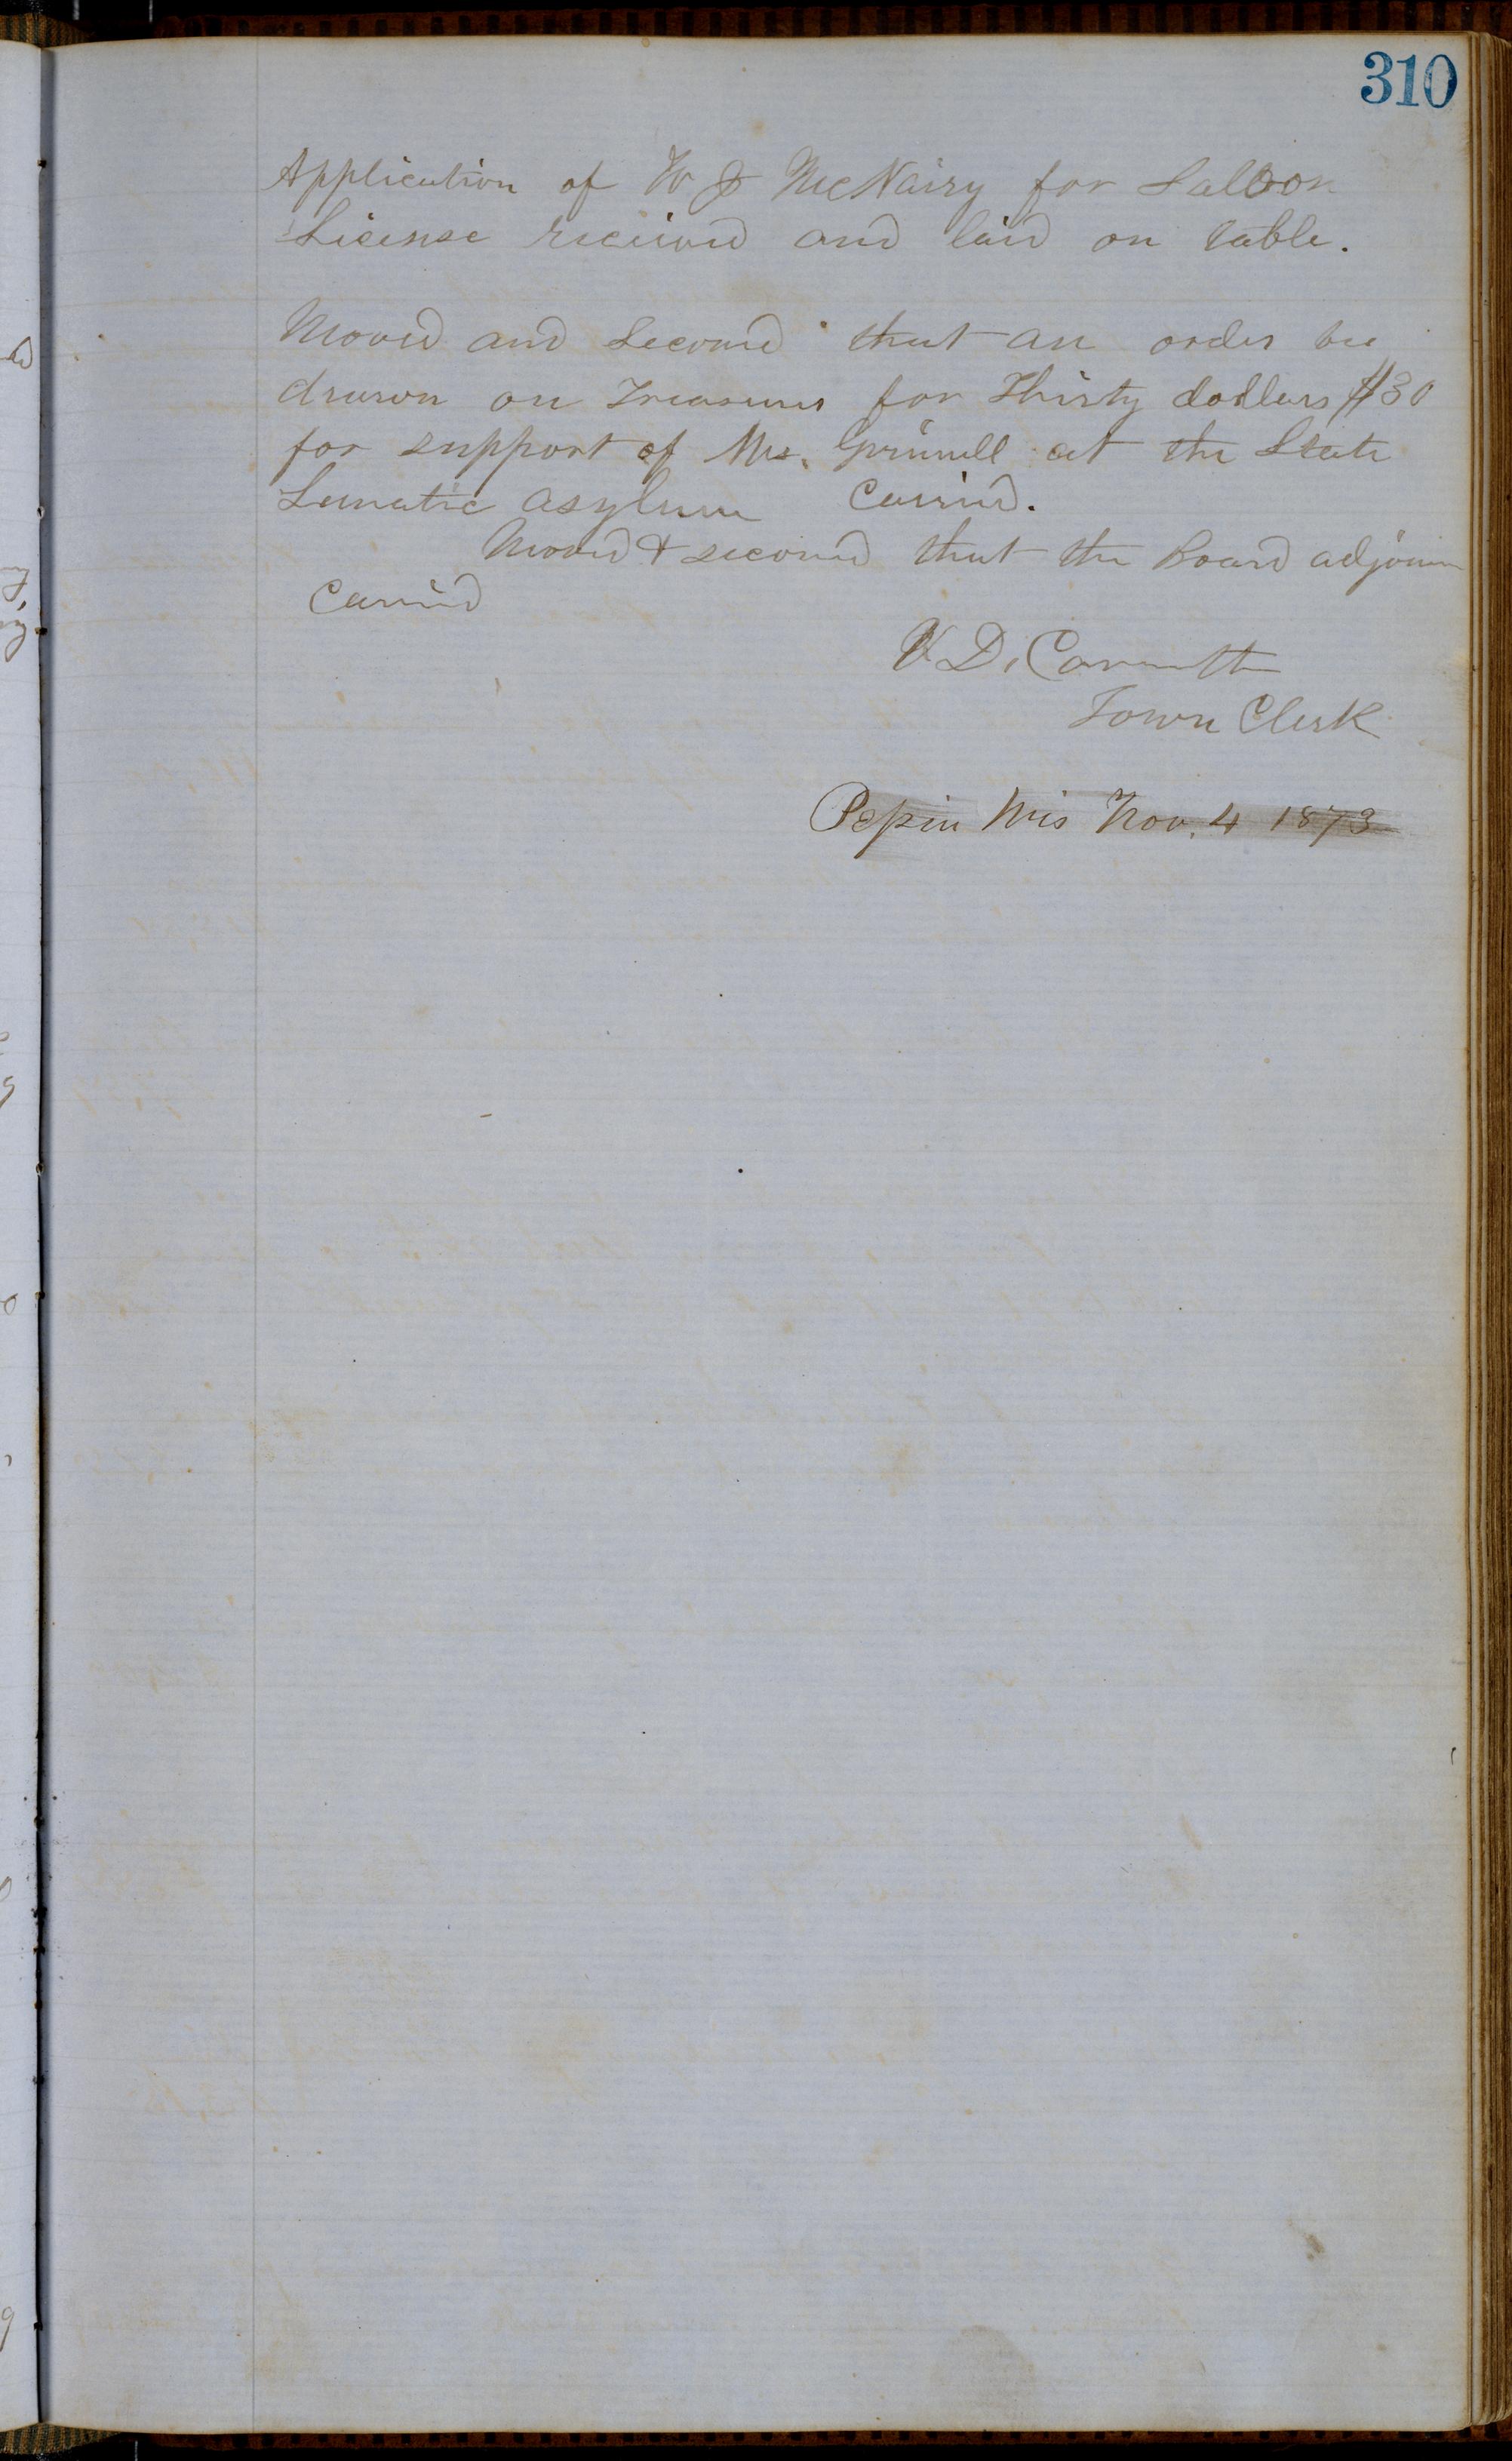 310
Application of W J McNairy for Saloon
License received and laid on table.
Moved and Second that an order be
drawn on Treasurer for Thirty dollars $30
for support of Mrs. Grinnell at the State
Lunatic Asylum Carried.
Moved & second that the Board adjourn
Carried
D. Carruth
Town Clerk
Pepin Wis Nov. 4 1873